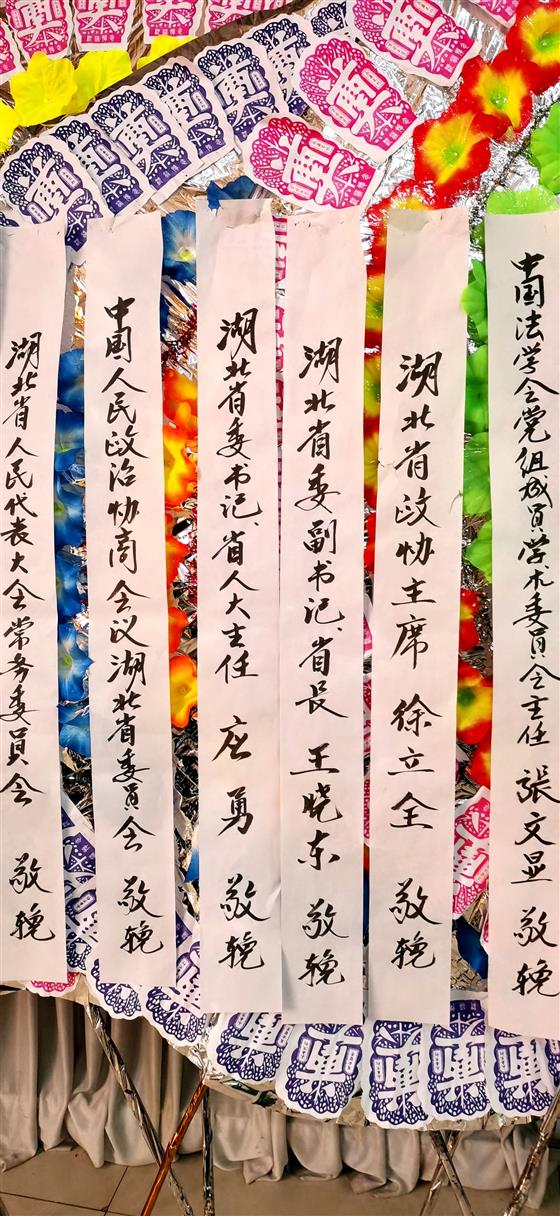 中国法学会党组成员学术委员会主任 張文显 敬挽
湖北省政协主席 徐立全 敬挽
湖北省委副书记、省长 王晓东 敬挽
湖北省委书记、省人大主任 应勇 敬挽
中國人民政治协商会议湖北省委員会 敬挽
湖北省人民代表大会常务委員会 敬挽